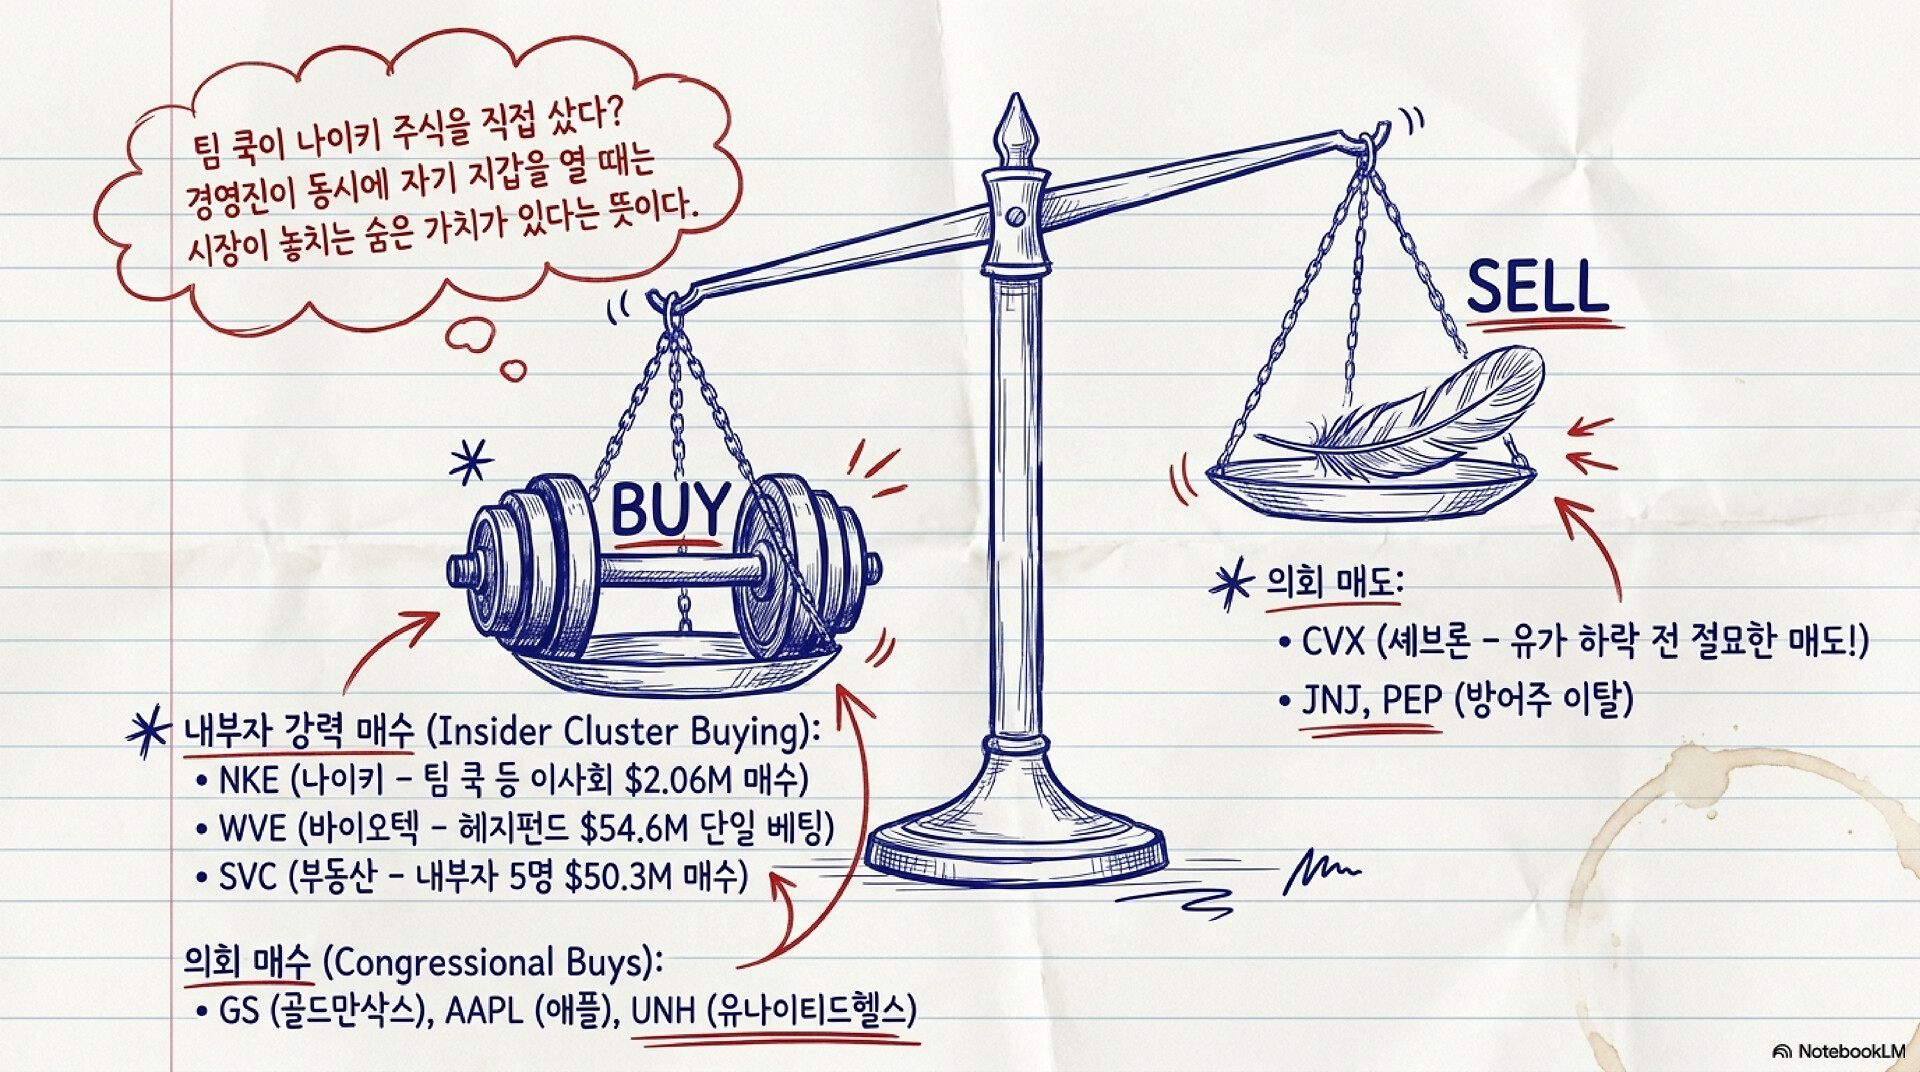 팀 쿡이 나이키 주식을 직접 샀다?
경영진이 동시에 자기 지갑을 열 때는
시장이 놓치는 숨은 가치가 있다는 뜻이다.
SELL
BUY
* 의회 매도:
• CVX (셰브론 – 유가 하락 전 절묘한 매도!)
• JNJ, PEP (방어주 이탈)
* 내부자 강력 매수 (Insider Cluster Buying):
• NKE (나이키 – 팀 쿡 등 이사회 $2.06M 매수)
• WVE (바이오텍 – 헤지펀드 $54.6M 단일 베팅)
• SVC (부동산 – 내부자 5명 $50.3M 매수)
의회 매수 (Congressional Buys):
• GS (골드만삭스), AAPL (애플), UNH (유나이티드헬스)
NotebookLM